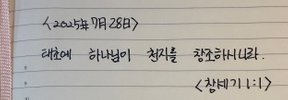 <2025年 7月 28日>
태초에 하나님이 천지를 창조하시니라.
<창세기 1:1>